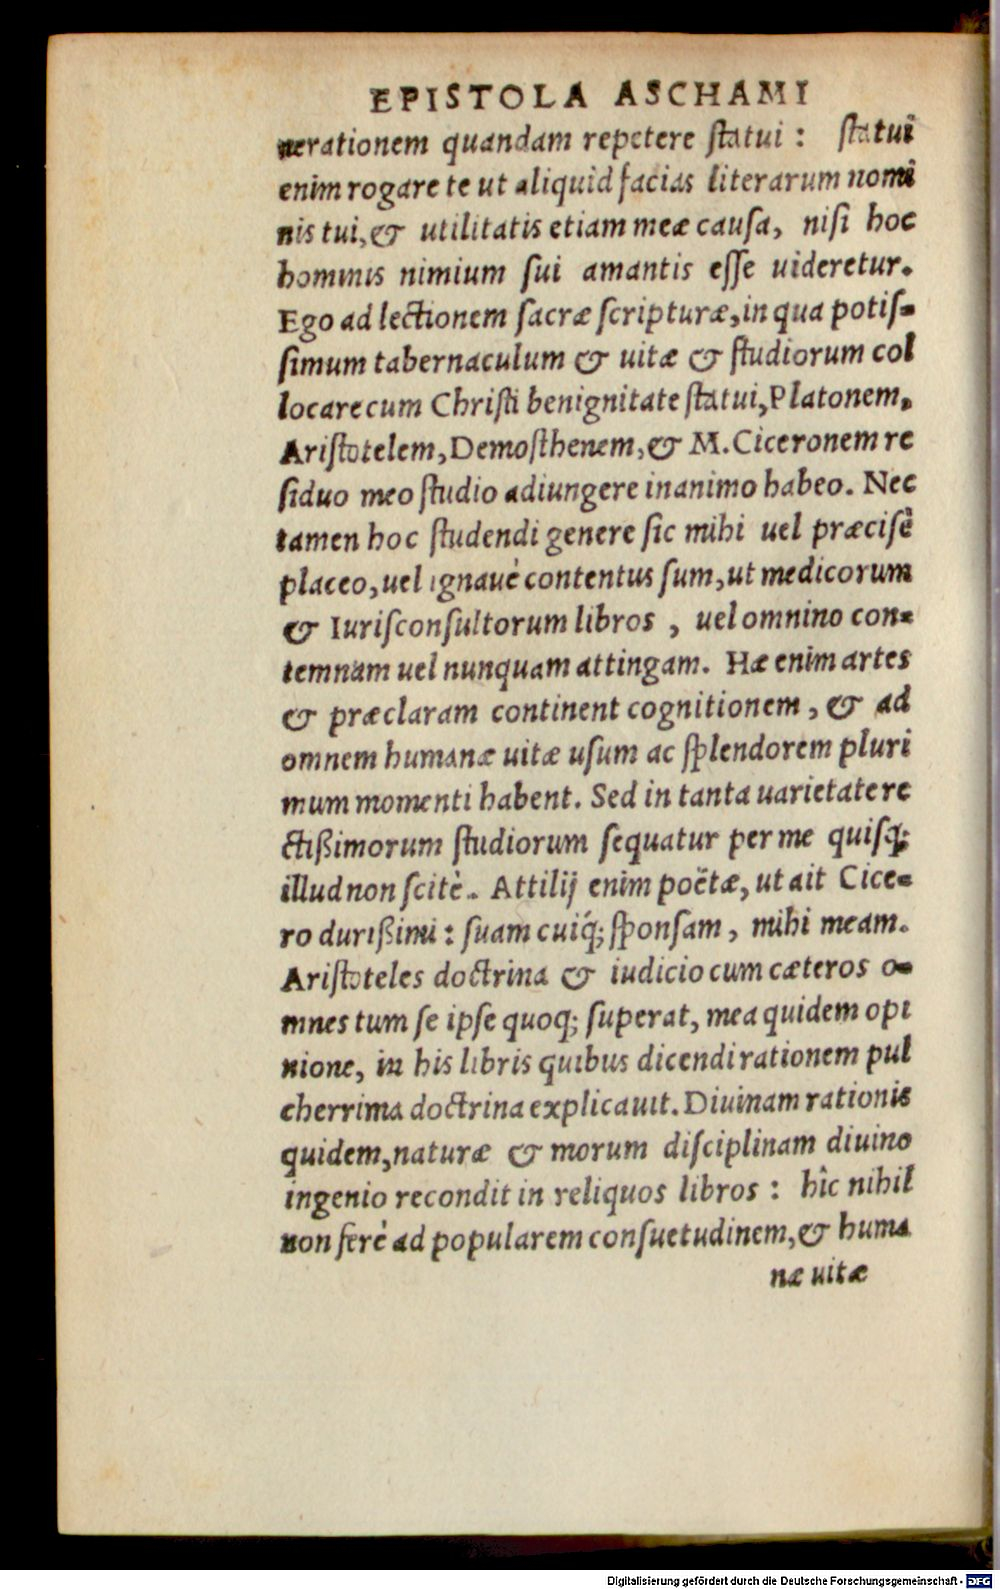 EPISTOLA ASCHAMI
nerationem quandam repetere ſtatui : ſtatui
enim rogare te ut aliquid facias literarum nomi
nis tui,& utilitatis etiam meæ cauſa, niſi hoc
hominis nimium ſui amantis eſſe uideretur.
Ego ad lectionem ſacræ ſcripturæ,in qua potiſ-
ſimum tabernaculum & uitæ & ſtudiorum col
locare cum Chriſti benignitate ſtatui,Platonem,
Ariſtotelem,Demoſthenem,& M.Ciceronem re
ſiduo meo ſtudio adiungere in animo habeo. Nec
tamen hoc ſtudendi genere ſic mihi uel præciſè
placeo,uel ignauè contentus ſum,ut medicorum
& Iuriſconſultorum libros , uel omnino con-
temnam uel nunquam attingam. Hæ enim artes
& præclaram continent cognitionem , & ad
omnem humanæ uitæ uſum ac ſplendorem pluri
mum momenti habent. Sed in tanta uarietate re
ctißimorum ſtudiorum ſequatur per me quiſq;
illud non ſcitè. Attilij enim poëtæ, ut ait Cice-
ro durißimi : ſuam cuiq́; ſponſam , mihi meam.
Ariſtoteles doctrina & iudicio cum cæteros o-
mnes tum ſe ipſe quoq; ſuperat, mea quidem opi
nione, in his libris quibus dicendi rationem pul
cherrima doctrina explicauit. Diuinam rationis
quidem,naturæ & morum diſciplinam diuino
ingenio recondit in reliquos libros : hîc nihil
non ferè ad popularem conſuetudinem,& huma
næ uitæ
Digitalisierung gefördert durch die Deutsche Forschungsgemeinschaft - DFG